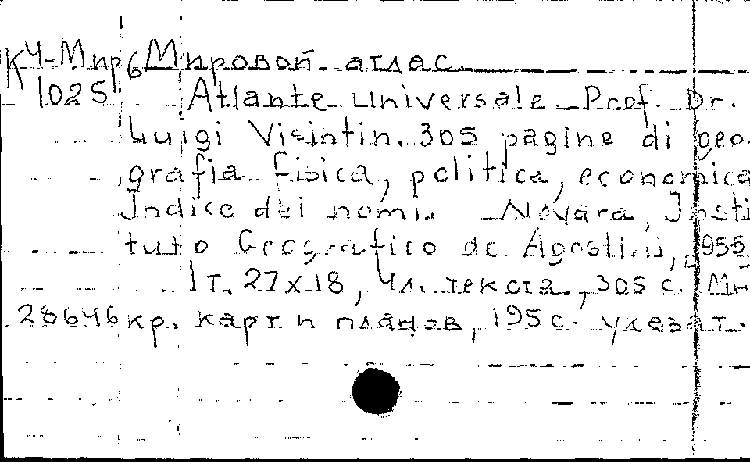 К4-Мир6 Мировой атлас.
1025 Atlante Universale Prof. Dr.
Luigi Visintin. 305 pagine di geo-
grafia fisica, politica, economica
Indice dei nomi. Novara, Isti
tuto Geografico de Agostini, 1955.
1т. 27х18, 4л. текста, 305 с. Мн
28646 кр. карт и планов, 195 с. указат.